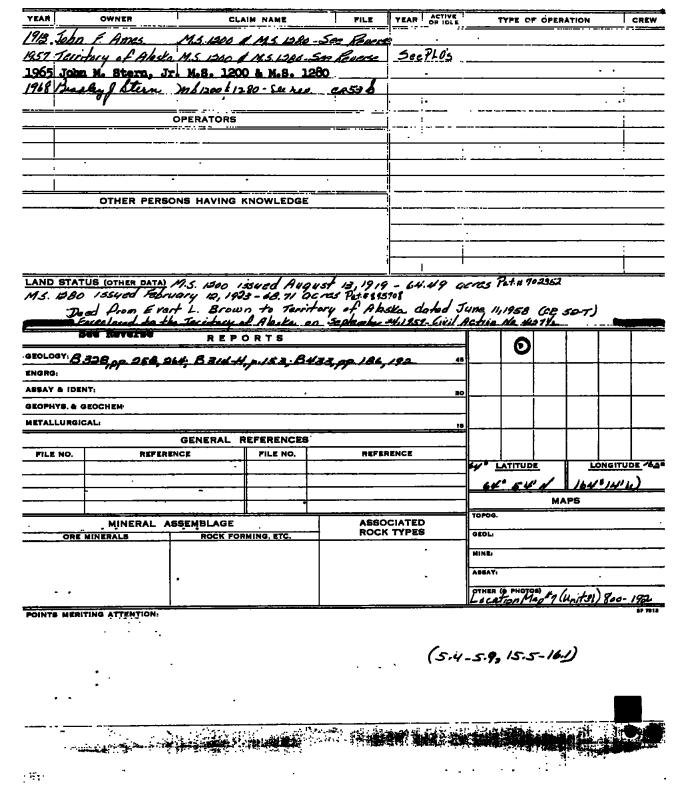 YEAR OWNER CLAIM NAME FILE YEAR ACTIVE OR IDLE TYPE OF OPERATION CREW
1913 John F. Ames M.S. 1200 & M.S. 1280 - See Reverse
1957 Territory of Alaska M.S. 1200 & M.S. 1280 - See Reverse See PLO's
1965 John M. Stern, Jr. M.S. 1200 & M.S. 1280
1968 Stern MS 1200 & 1280 - See rev.
OPERATORS
OTHER PERSONS HAVING KNOWLEDGE
LAND STATUS (OTHER DATA) M.S. 1200 issued August 13, 1919 - 64.49 acres Pat.# 702352
M.S. 1280 issued February 12, 1923 - 68.71 acres Pat#
Deed from Evart L. Brown to Territory of Alaska dated June 11, 1958
Foreclosed to the Territory of Alaska on September 24, 1957 - Civil Action No.
See Reverse
REPORTS
GEOLOGY: B 328, pp. 258, 264; B 314-H, p. 153; B 433, pp. 186, 192 45
ENGRG:
ASSAY & IDENT: 30
GEOPHYS. & GEOCHEM:
METALLURGICAL: 15
GENERAL REFERENCES
FILE NO. REFERENCE FILE NO. REFERENCE
64° LATITUDE LONGITUDE
64° 54' N 164° 14' W
MAPS
MINERAL ASSEMBLAGE
ORE MINERALS ROCK FORMING, ETC.
ASSOCIATED ROCK TYPES
TOPOG.
GEOL:
MINE:
ASSAY:
OTHER (& PHOTOS)
Location Map #7 (Unit 91) 800-192
POINTS MERITING ATTENTION:
(5.4-5.9, 15.5-16.1)